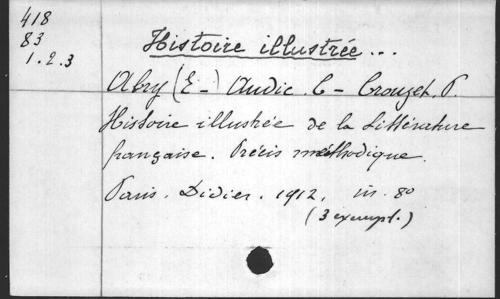 418
83
1.2.3
Histoire illustrée...
Abry (E-) Audic. C- Crouzet. P.
Histoire illustrée de la Littérature
française. Précis méthodique.
Paris. Didier. 1912. in. 8º
(3 exempl.)